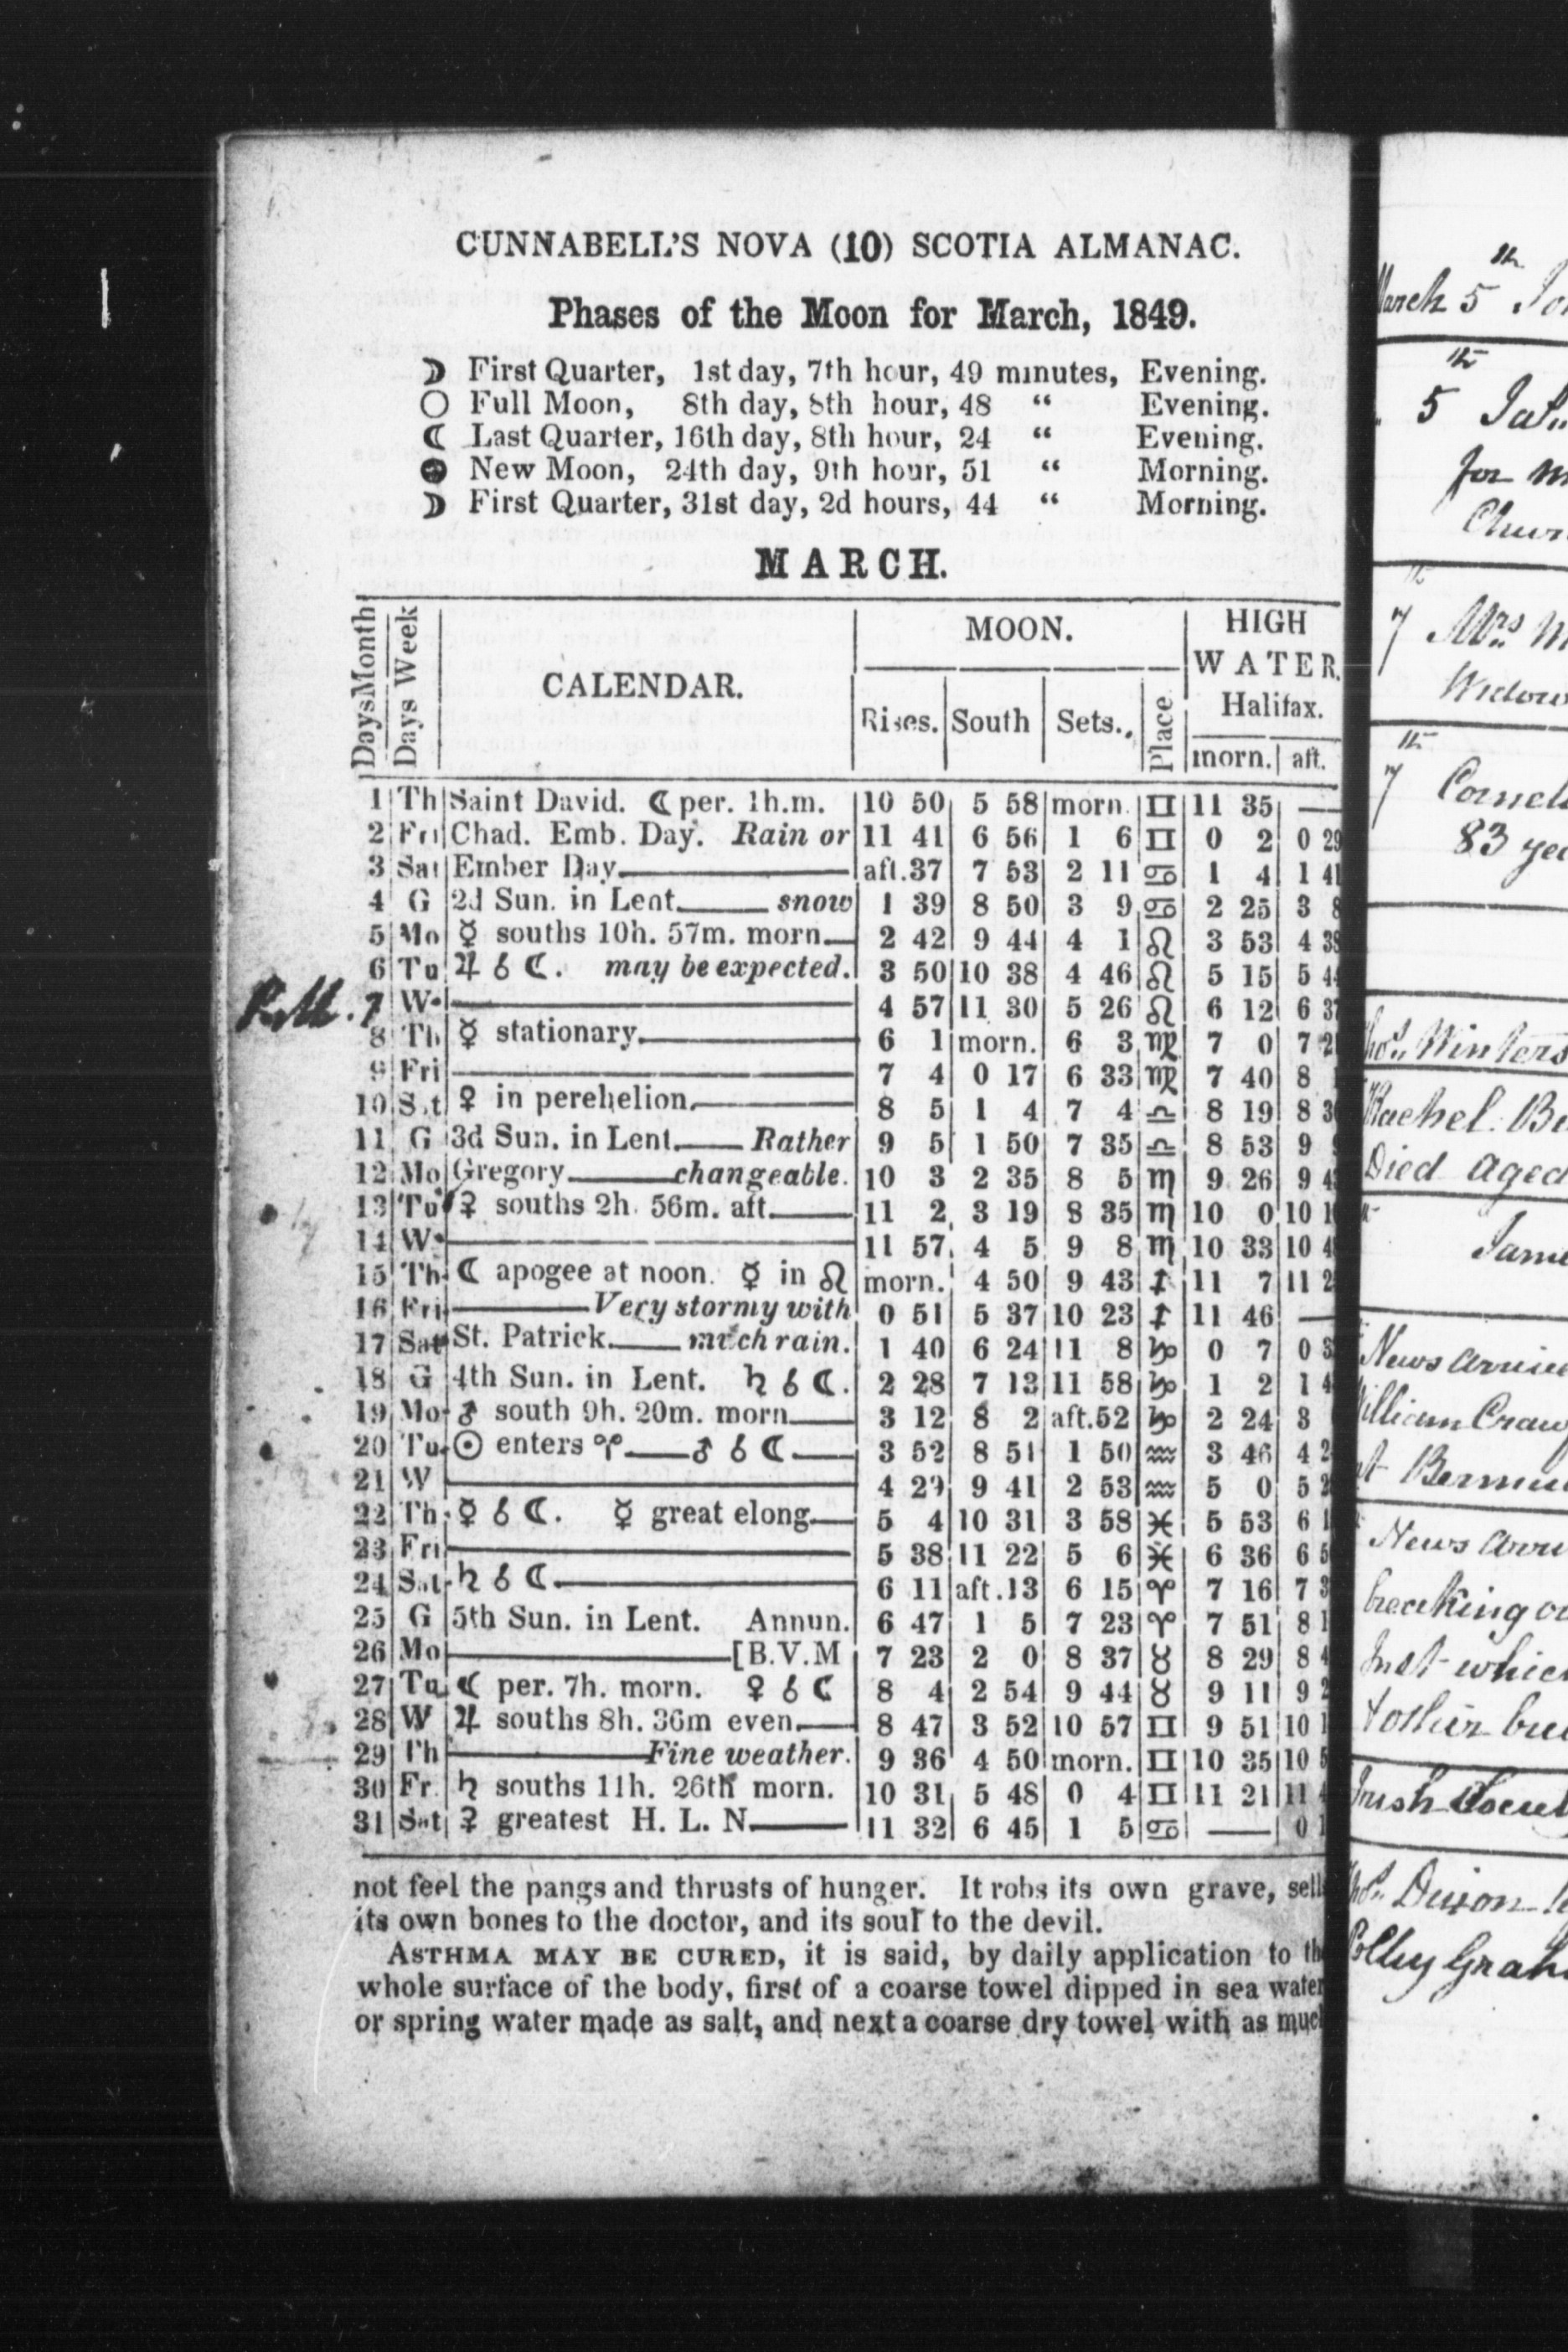 CUNNABELL'S NOVA (10) SCOTIA ALMANAC.
Phases of the Moon for March, 1849.
☽ First Quarter, 1st day, 7th hour, 49 minutes, Evening.
○ Full Moon, 8th day, 8th hour, 48 “ Evening.
☾ Last Quarter, 16th day, 8th hour, 24 “ Evening.
● New Moon, 24th day, 9th hour, 51 “ Morning.
☽ First Quarter, 31st day, 2d hours, 44 “ Morning.
MARCH.
DaysMonth Days Week CALENDAR. MOON. HIGH WATER. Halifax.
Rises. South Sets. Place morn. aft.
1 Th Saint David. ☾ per. 1h.m. 10 50 5 58 morn. ♊ 11 35 —
2 Fri Chad. Emb. Day. Rain or 11 41 6 56 1 6 ♊ 0 2 0 29
3 Sat Ember Day— aft.37 7 53 2 11 ♋ 1 4 1 41
4 G 2d Sun. in Lent.— snow 1 39 8 50 3 9 ♋ 2 25 3 8
5 Mo ☿ souths 10h. 57m. morn— 2 42 9 44 4 1 ♌ 3 53 4 38
6 Tu ♃ ☌ ☾. may be expected. 3 50 10 38 4 46 ♌ 5 15 5 44
7 W — 4 57 11 30 5 26 ♌ 6 12 6 37
8 Th ☿ stationary.— 6 1 morn. 6 3 ♍ 7 0 7 2
9 Fri — 7 4 0 17 6 33 ♍ 7 40 8
10 Sat ♀ in perehelion.— 8 5 1 4 7 4 ♎ 8 19 8 3
11 G 3d Sun. in Lent.— Rather 9 5 1 50 7 35 ♎ 8 53 9
12 Mo Gregory— changeable. 10 3 2 35 8 5 ♏ 9 26 9 4
13 Tu ♀ souths 2h. 56m. aft.— 11 2 3 19 8 35 ♏ 10 0 10 1
14 W — 11 57 4 5 9 8 ♏ 10 33 10 4
15 Th ☾ apogee at noon. ☿ in ☊ morn. 4 50 9 43 ♐ 11 7 11 2
16 Fri — Very stormy with 0 51 5 37 10 23 ♐ 11 46 —
17 Sat St. Patrick.— much rain. 1 40 6 24 11 8 ♑ 0 7 0 3
18 G 4th Sun. in Lent. ♄ ☌ ☾. 2 28 7 13 11 58 ♑ 1 2 1 4
19 Mo ♂ south 9h. 20m. morn— 3 12 8 2 aft.52 ♑ 2 24 3
20 Tu ☉ enters ♈— ♂ ☌ ☾— 3 52 8 51 1 50 ♒ 3 46 4 2
21 W — 4 29 9 41 2 53 ♒ 5 0 5 2
22 Th ☿ ☌ ☾. ☿ great elong.— 5 4 10 31 3 58 ♓ 5 53 6 1
23 Fri — 5 38 11 22 5 6 ♓ 6 36 6 5
24 Sat ♄ ☌ ☾.— 6 11 aft.13 6 15 ♈ 7 16 7 3
25 G 5th Sun. in Lent. Annun. 6 47 1 5 7 23 ♈ 7 51 8 1
26 Mo —[B.V.M 7 23 2 0 8 37 ♉ 8 29 8 4
27 Tu ☾ per. 7h. morn. ♀ ☌ ☾ 8 4 2 54 9 44 ♉ 9 11 9 2
28 W ♃ souths 8h. 36m even.— 8 47 3 52 10 57 ♊ 9 51 10 1
29 Th — Fine weather. 9 36 4 50 morn. ♊ 10 35 10 5
30 Fr. ♄ souths 11h. 26th morn. 10 31 5 48 0 4 ♊ 11 21 11 4
31 Sat ☿ greatest H. L. N.— 11 32 6 45 1 5 ♋ — 0 1
not feel the pangs and thrusts of hunger. It robs its own grave, sell
its own bones to the doctor, and its soul to the devil.
ASTHMA MAY BE CURED, it is said, by daily application to th
whole surface of the body, first of a coarse towel dipped in sea water
or spring water made as salt, and next a coarse dry towel with as muc
March 5th
5th
for
7th Mrs
Widow
7th
83
Winters
Rachel
Died aged
News
William
Bermu
News
breaking
Inst which
Dixon
Polly Grah